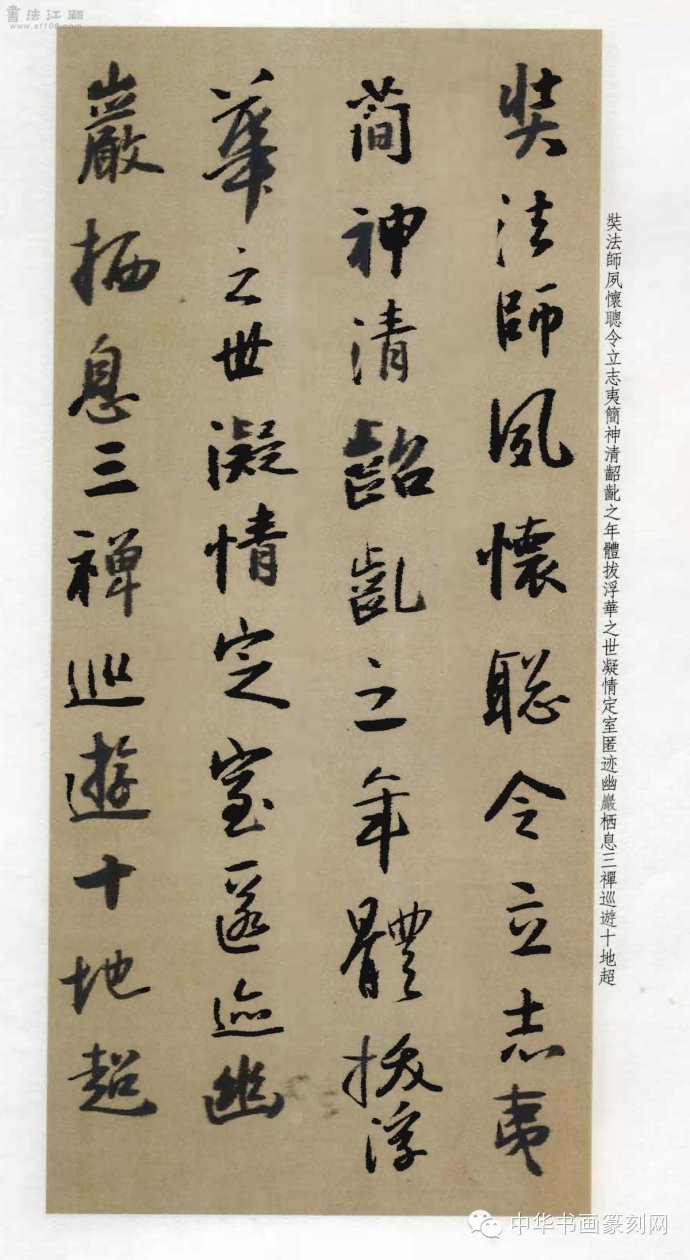 書法江湖
www.sf108.com
奘法師夙懷聰令立志夷
簡神清齠齔之年體拔浮
華之世凝情定室匿迹幽
巖栖息三禪巡遊十地超
奘法師夙懷聰令立志夷簡神清齠齔之年體拔浮華之世凝情定室匿迹幽巖栖息三禪巡遊十地超
中华书画篆刻网